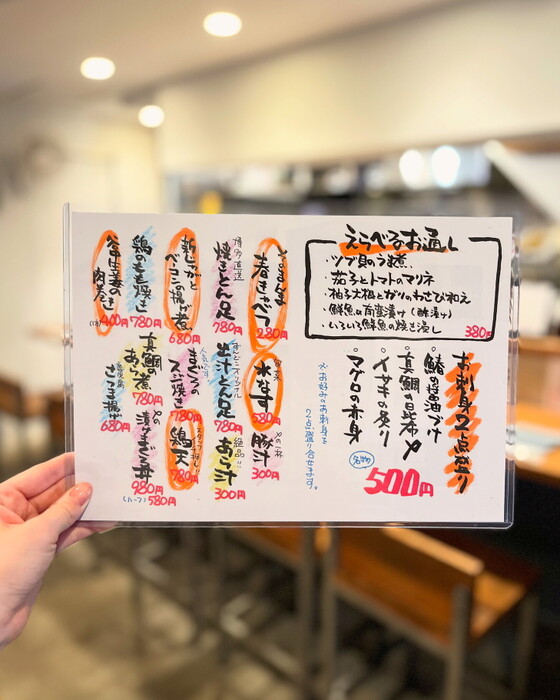 えらべるお通し
・ツブ貝のうま煮
・茄子とトマトのマリネ
・柚子大根とガリのわさび和え
・鮮魚の南蛮漬け(酢漬け)
・いろいろ鮮魚の焼き浸し
380円
お刺身2点盛り
鰆の醤油づけ
真鯛の昆布〆
イサキの炙り
マグロの赤身
名物
500円
※お好みのお刺身を
2点盛り合せます。
そのまんま
春きゃべつ
280円
水なす
580円
〆の一杯
豚汁
300円
博多直送
焼きとん足
780円
出汁とん足
780円
絶品!!
あら汁
300円
新じゃがと
ベーコンの揚げ煮
680円
まぐろの
スジ焼き
780円
スタッフ推し
鶏天
780円
鶏のもも焼き
780円
真鯛の
あら煮
780円
〆の
漬けまぐろ丼
980円
(ハーフ)580円
谷中生姜の
肉巻き
400円
さつま揚げ
680円